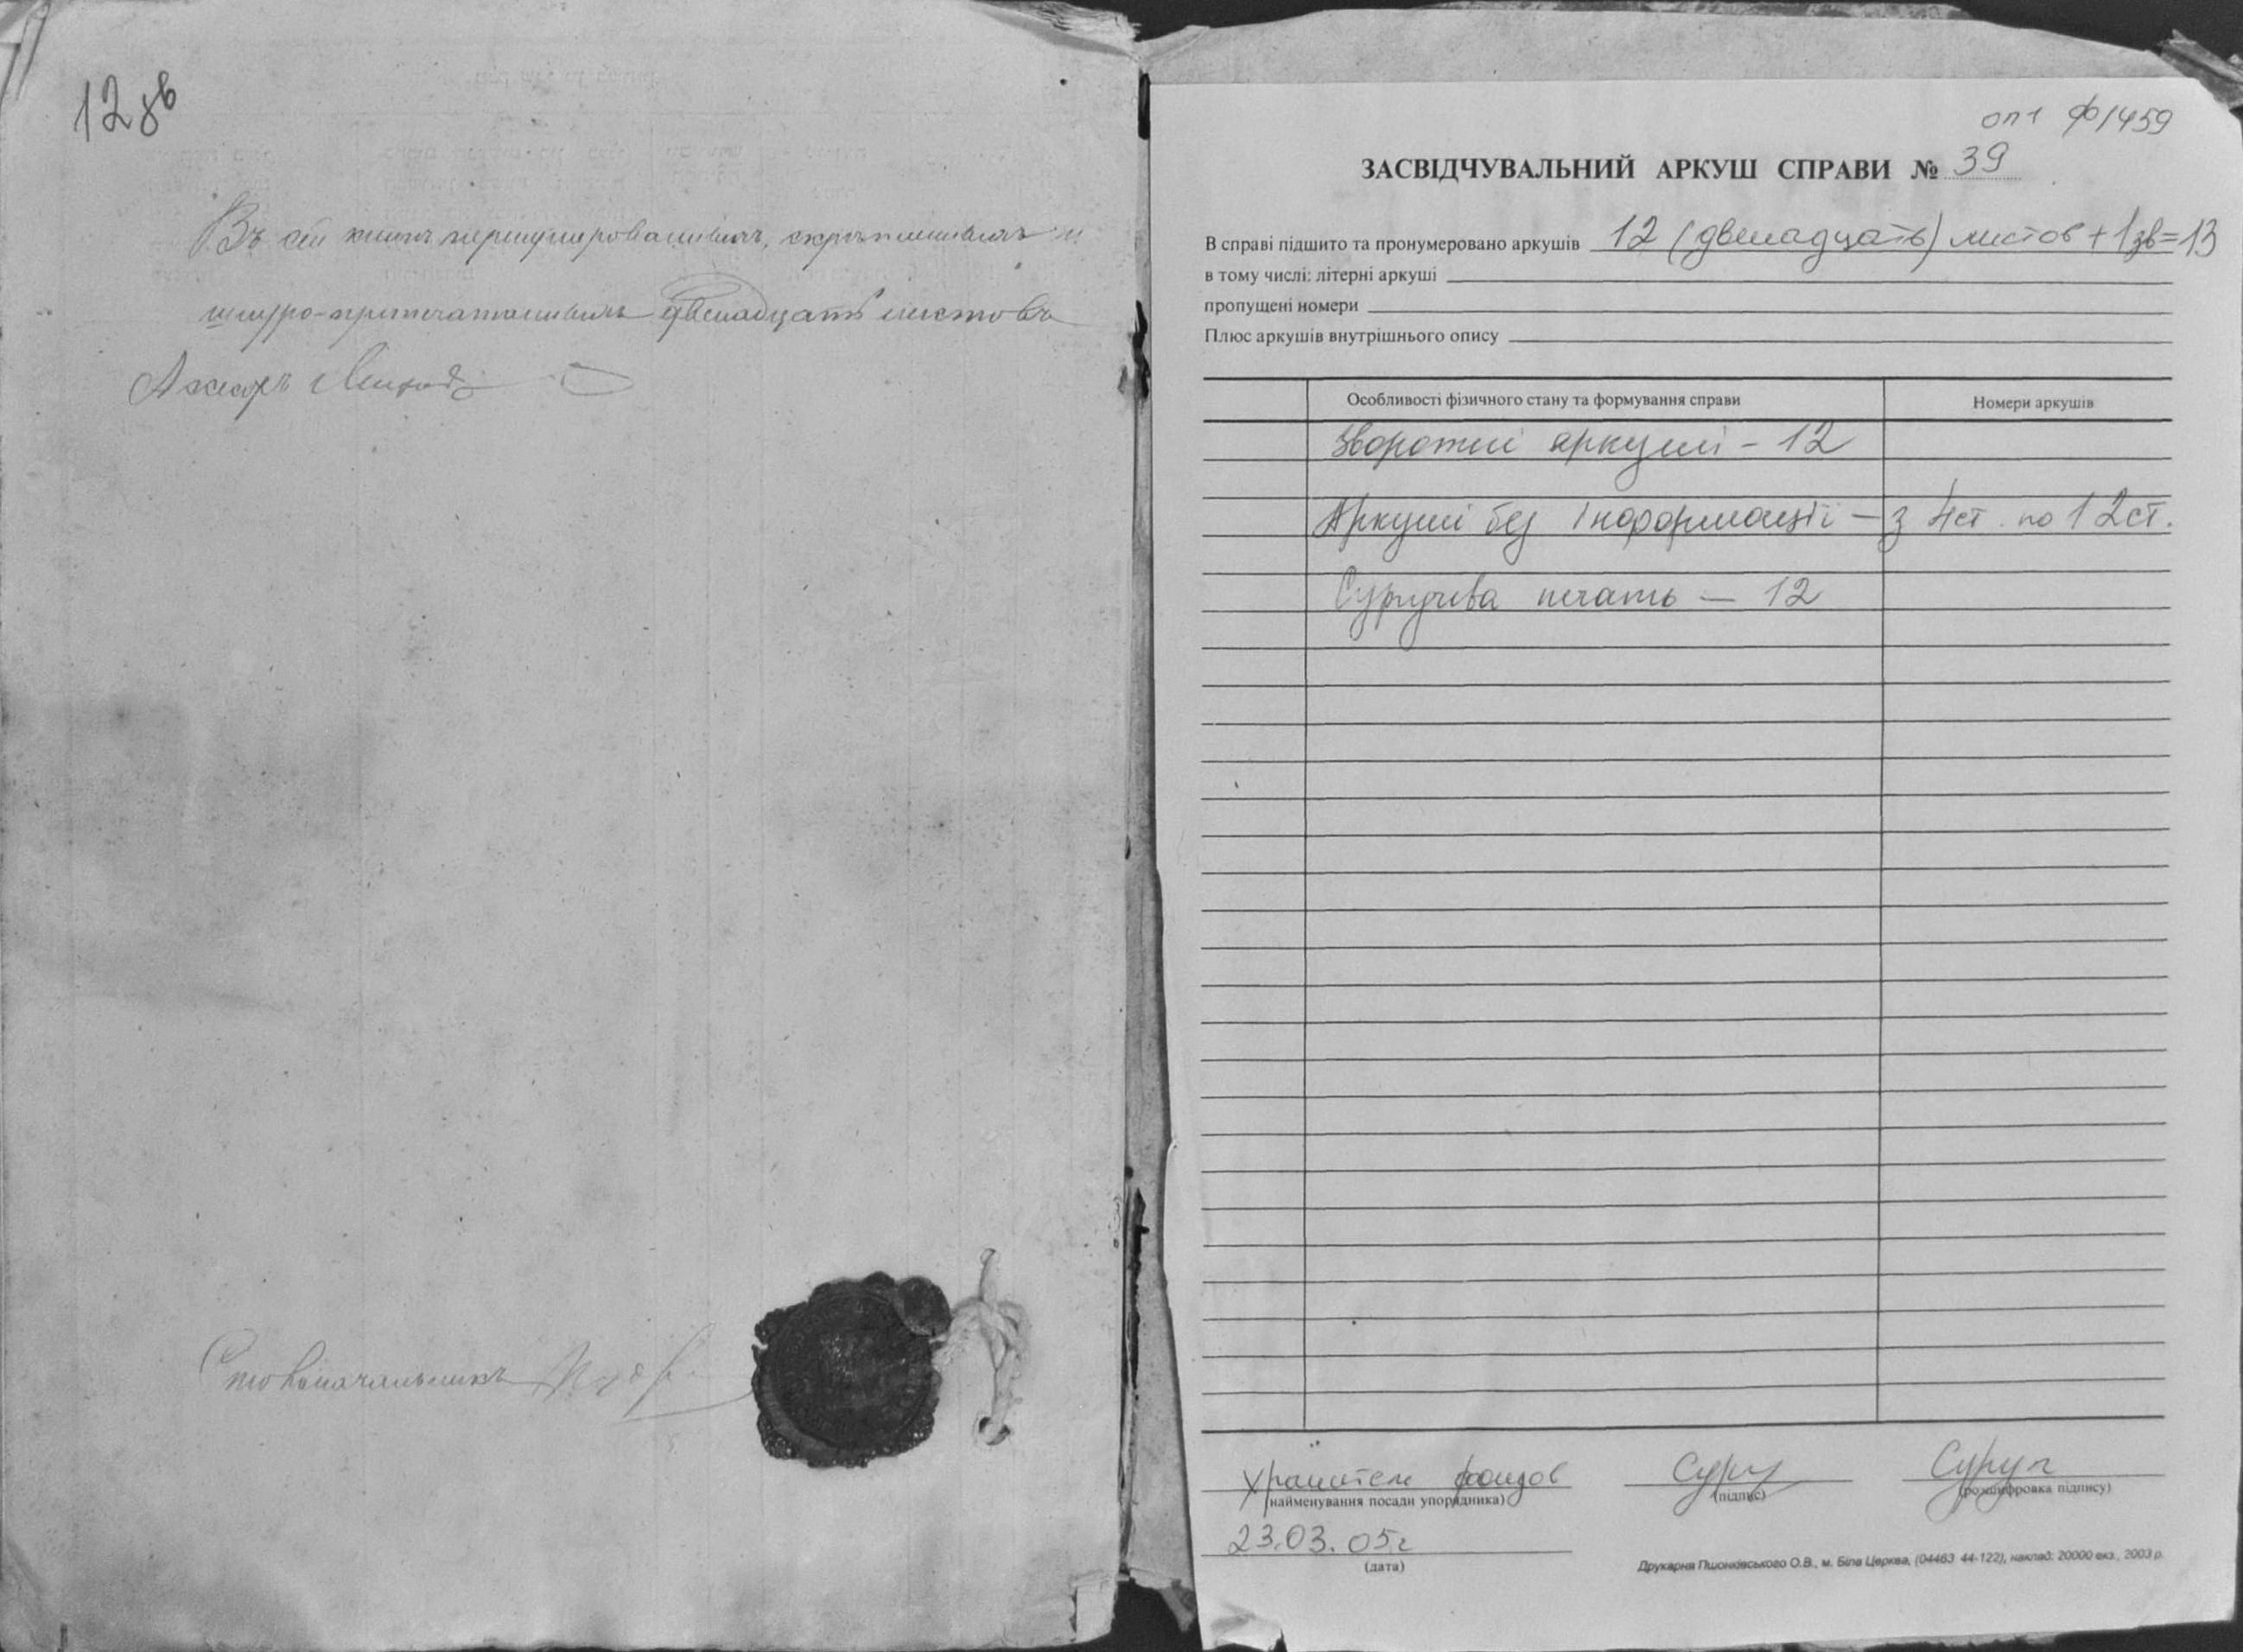 12 зв
Въ сей книгѣ перенумерованныхъ, скрѣпленныхъ и
шнуро-припечатанныхъ двенадцать листовъ
Столоначальникъ
оп 1 ф 1459
ЗАСВІДЧУВАЛЬНИЙ АРКУШ СПРАВИ № 39
В справі підшито та пронумеровано аркушів 12 (двенадцать) листов + 1зв=13
в тому числі: літерні аркуші
пропущені номери
Плюс аркушів внутрішнього опису
Особливості фізичного стану та формування справи Номери аркушів
Зворотні аркуші - 12
Аркуші без інформації – з 4ст. по 12ст.
Сургучева печать – 12
Хранитель фондов
(найменування посади упорядника) (підпис) (розшифровка підпису)
23.03.05г
(дата)
Друкарня Пшонківського О.В., м. Біла Церква, (04463 44-122), наклад: 20000 екз., 2003 р.